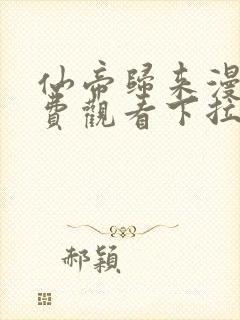 仙帝歸來漫
費觀看下拉
郝穎